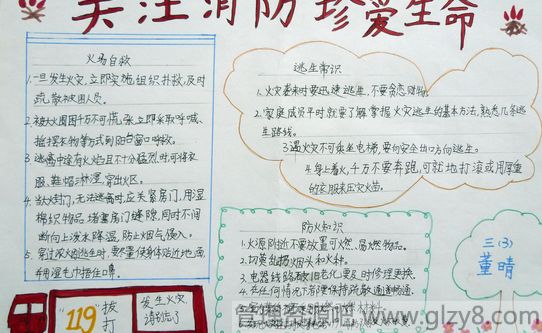 关注消防 珍爱生命
火场自救
1.一旦发生火灾,立即实施组织扑救,及时
疏散被困人员。
2.被大火围困千万不可慌张,立即采取呼喊、
抛摆衣物等方式到阳台窗口呼救。
3.逃离中途有火焰且不十分猛烈时,可将衣
服、鞋帽淋湿,穿出火区。
4.当火封门,无法逃离时,应关紧房门,用湿
棉织物品堵塞房门缝隙,同时不间
断向上泼水降温,防止烟气侵入。
5.穿过浓烟逃生时,要尽量使身体贴近地面,
并用湿毛巾捂住口鼻。
逃生常识
1.火灾袭来时要迅速逃生,不要贪恋财物。
2.家庭成员平时就要了解掌握火灾逃生的基本方法,熟悉几条逃
生路线。
3.遇火灾不可乘坐电梯,要向安全出口方向逃生。
4.身上着火,千万不要奔跑,可就地打滚或用厚重
的衣服来压灭火苗。
防火知识
1.火源附近不要放置可燃、易燃物品。
2.切莫乱扔烟头和火种。
3.电器线路破旧老化要及时修理更换。
4.在任何情况下都要保持疏散通道畅通。
三(3)
董晴
"119"
拨
打
发生火灾,
请别忘了
www.glzy8.com